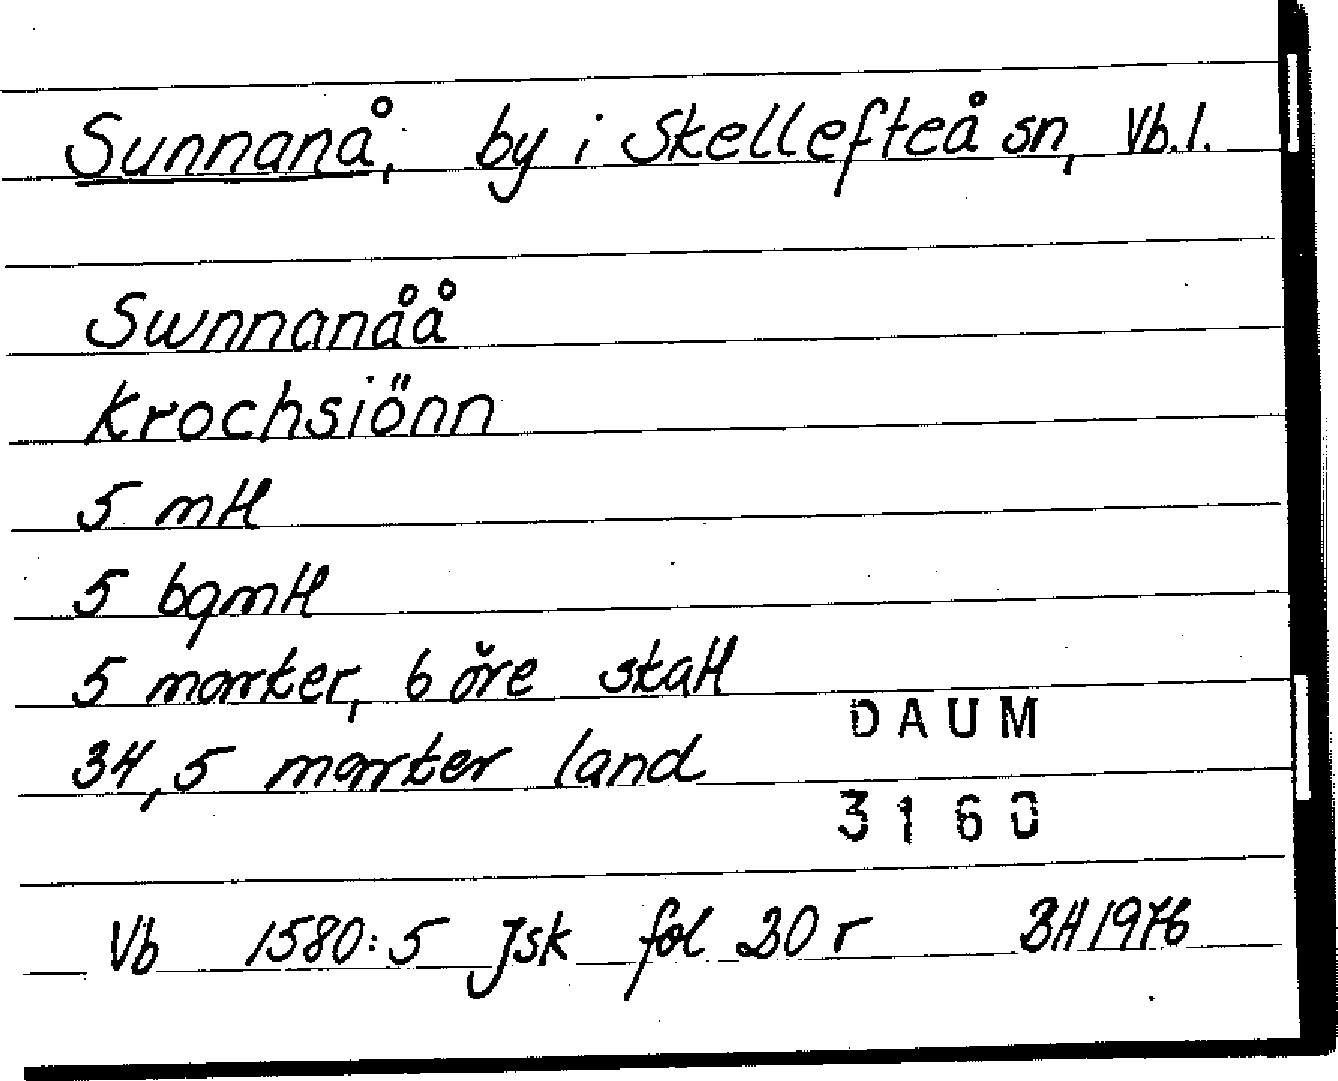 Sunnanå, by i Skellefteå sn, Vb.l.
Swnnanåå
Krochsiönn
5 mtl
5 bgmtl
5 marker, 6 öre skatt
34,5 marker land
DAUM
3160
Vb 1580:5 Jsk fol 20 r BH 1976